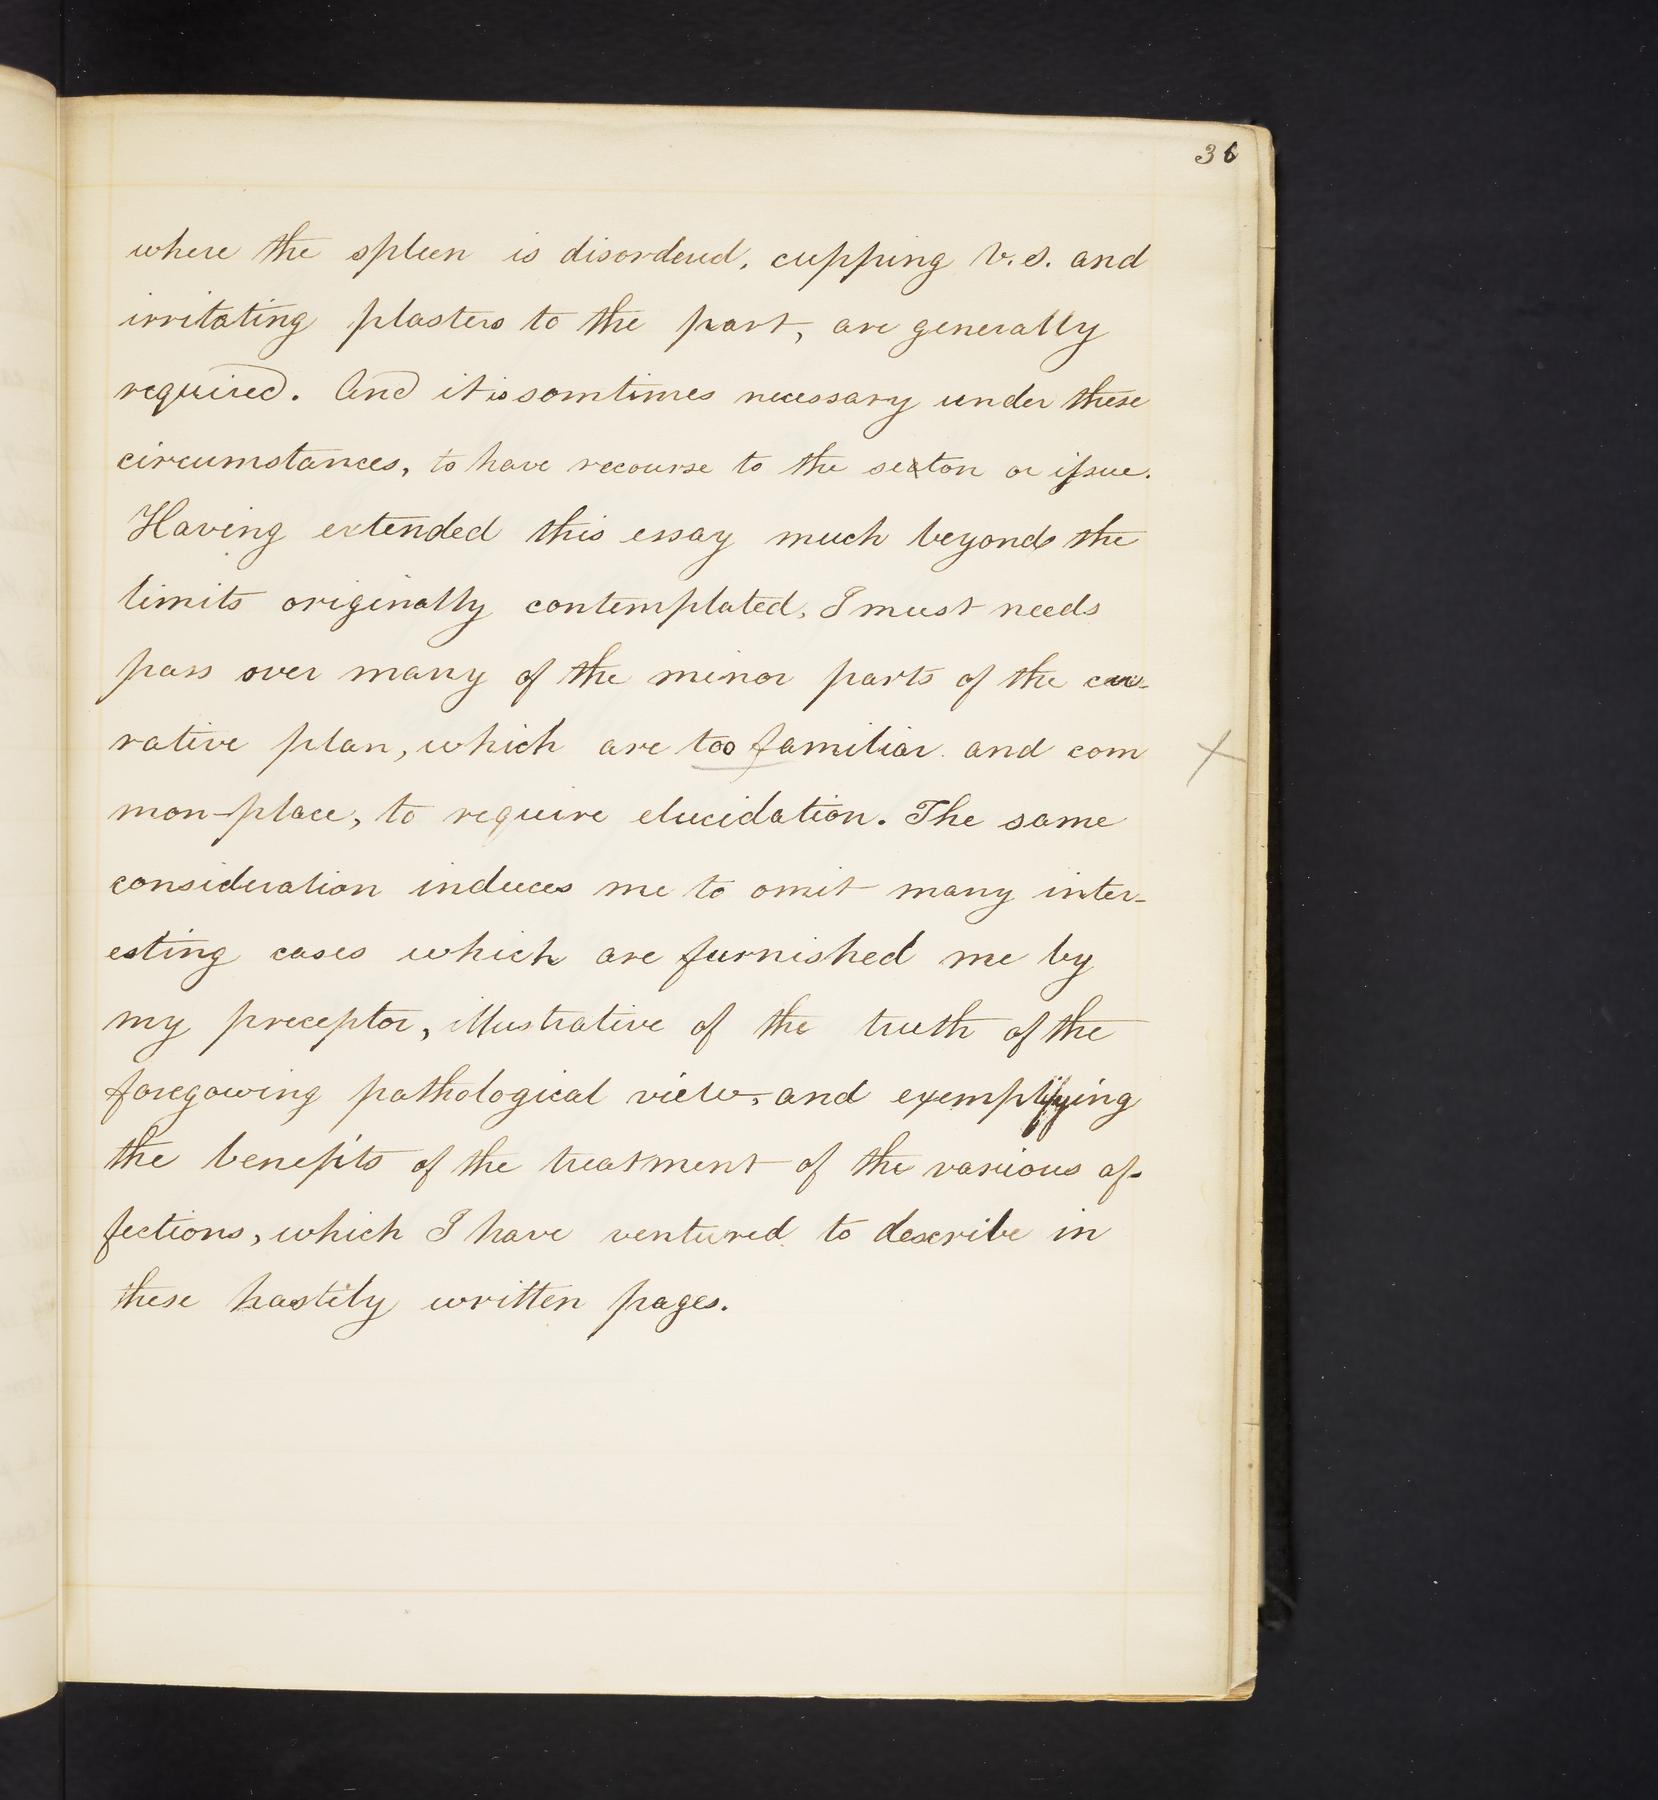 36
where the spleen is disordered, cupping V.S. and
irritating plasters to the part, are generally
required. And it is somtimes necessary under these
circumstances, to have recourse to the seaton or issue.
Having extended this essay much beyond the
limits originally contemplated, I must needs
pass over many of the minor parts of the cu-
rative plan, which are too familiar and com
mon-place, to require elucidation. The same
consideration induces me to omit many inter-
esting cases which are furnished me by
my preceptor, illustrative of the truth of the
foregowing pathological view, and exemplifying
the benefits of the treatment of the various af-
fections, which I have ventured to describe in
these hastily written pages.